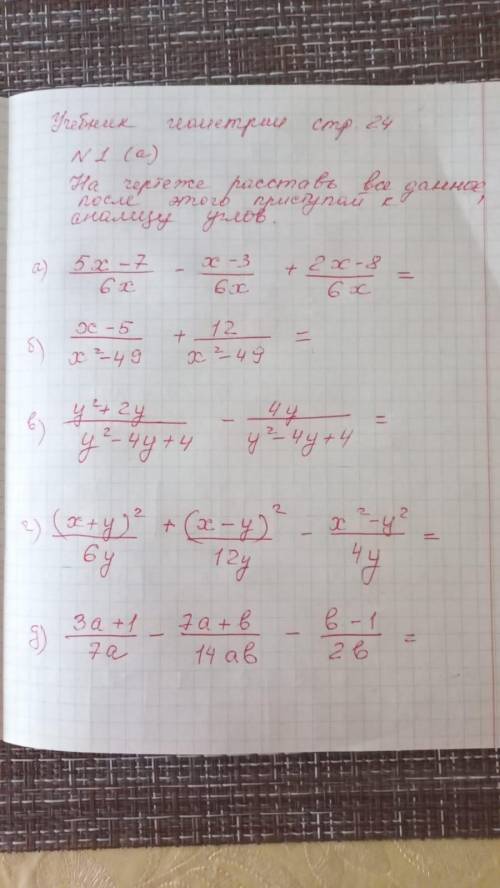 Учебник геометрии стр. 24
N 1 (а)
На чертеже расставь все данные,
после этого приступай к
анализу углов.
а) (5x - 7)/(6x) - (x - 3)/(6x) + (2x - 8)/(6x) =
б) (x - 5)/(x² - 49) + 12/(x² - 49) =
в) (y² + 2y)/(y² - 4y + 4) - 4y/(y² - 4y + 4) =
г) (x + y)²/(6y) + (x - y)²/(12y) - (x² - y²)/(4y) =
д) (3a + 1)/(7a) - (7a + b)/(14ab) - (b - 1)/(2b) =